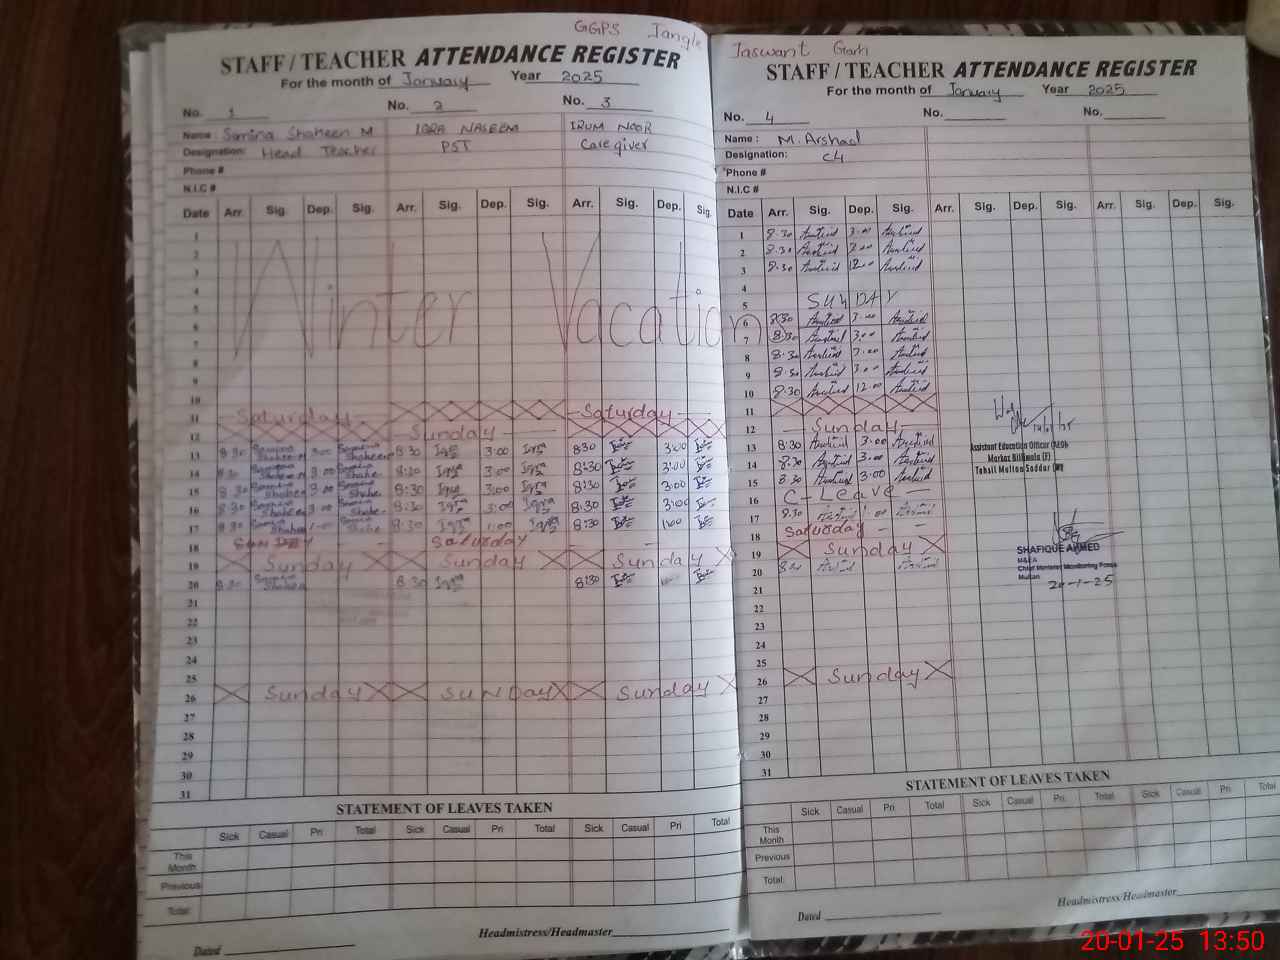 GGPS Jangle
STAFF / TEACHER ATTENDANCE REGISTER
For the month of January Year 2025
No. 1 No. 2 No. 3
Name: Samina Shaheen M IQRA NASEEM IRUM NOOR
Designation: Head Teacher PST Care giver
Phone #
N.I.C #
Date Arr. Sig. Dep. Sig. Arr. Sig. Dep. Sig. Arr. Sig. Dep. Sig.
1
2
3
4
5
6
7
8
9
10
Winter Vacation
11 Saturday Saturday
12 Sunday
13 8:30 Samina Shaheen 3:00 Samina Shaheen 8:30 Iqra 3:00 Iqra 8:30 3:00
14 8:30 Samina Shaheen 3:00 Samina Shahe 8:30 Iqra 3:00 Iqra 8:30 3:00
15 8:30 Samina Shaheen 3:00 Samina Shahe 8:30 Iqra 3:00 Iqra 8:30 3:00
16 8:30 Samina Shaheen 3:00 Samina Shahe 8:30 Iqra 3:00 Iqra 8:30 3:00
17 8:30 Samina Shaheen 1:00 8:30 Iqra 1:00 Iqra 8:30 1:00
18 Saturday
19 Sunday Sunday Sunday
20 8:30 Samina Shaheen 8:30 Iqra 8:30
21
22
23
24
25
26 Sunday SUNDay Sunday
27
28
29
30
31
STATEMENT OF LEAVES TAKEN
Sick Casual Pri Total Sick Casual Pri Total Sick Casual Pri Total
This Month
Previous
Total:
Headmistress/Headmaster
Dated
Jaswant Garh
STAFF / TEACHER ATTENDANCE REGISTER
For the month of January Year 2025
No. 4 No. No.
Name: M. Arshad
Designation: C4
Phone #
N.I.C #
Date Arr. Sig. Dep. Sig. Arr. Sig. Dep. Sig. Arr. Sig. Dep. Sig.
1 8:30 3:00
2 8:30
3 8:30 12:00
4
5 SUNDAY
6 8:30 3:00
7 8:30 3:00
8 8:30
9 8:30 3:00
10 8:30 12:00
11
12 Sunday
13 8:30 3:00
14 8:30 3:00
15 8:30 3:00
16 C-Leave
17 8:30 1:00
18 Saturday
19 Sunday
20 8:30
21
22
23
24
25
26 Sunday
27
28
29
30
31
Assistant Education Officer (AEO)
Markaz (F)
Tehsil Multan Saddar
SHAFIQUE AHMED
M&EA
Chief Minister Monitoring Force
Multan
20-1-25
STATEMENT OF LEAVES TAKEN
Sick Casual Pri Total Sick Casual Pri Total Sick Casual Pri Total
This Month
Previous
Total:
Headmistress/Headmaster
Dated
20-01-25 13:50